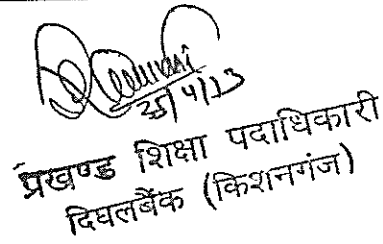 प्रखण्ड शिक्षा पदाधिकारी
दिघलबैंक (किशनगंज)